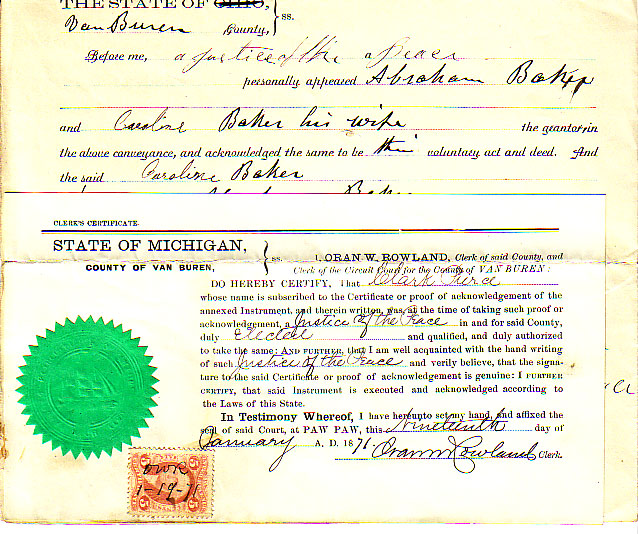 THE STATE OF OHIO,
Van Buren County, } ss.
Before me, a justice of the peace
personally appeared Abraham Baker
and Caroline Baker his wife the grantor in
the above conveyance, and acknowledged the same to be their voluntary act and deed. And
the said Caroline Baker
CLERK'S CERTIFICATE.
STATE OF MICHIGAN,
COUNTY OF VAN BUREN, } ss.
I, ORAN W. ROWLAND, Clerk of said County, and
Clerk of the Circuit Court for the County of VAN BUREN:
DO HEREBY CERTIFY, That Clark Pierce
whose name is subscribed to the Certificate or proof of acknowledgment of the
annexed Instrument, and therein written, was, at the time of taking such proof or
acknowledgment, a Justice of the Peace in and for said County,
duly Elected and qualified, and duly authorized
to take the same: AND FURTHER, that I am well acquainted with the hand writing
of such Justice of the Peace and verily believe, that the signa-
ture to the said Certificate or proof of acknowledgment is genuine: I FURTHER
CERTIFY, that said Instrument is executed and acknowledged according to
the Laws of this State.
In Testimony Whereof, I have hereunto set my hand, and affixed the
seal of said Court, at PAW PAW, this Nineteenth day of
January A. D. 1871.
Oran W Rowland Clerk.
OWR
1-19-71